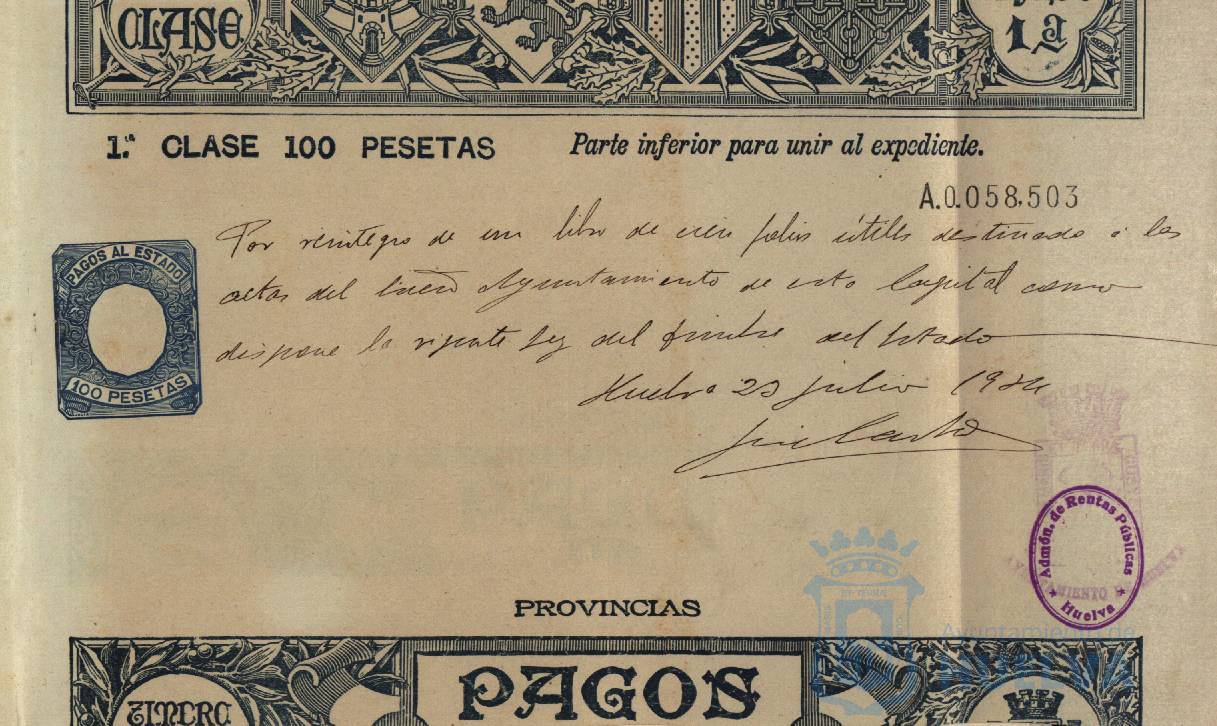 CLASE
1.ª
1.ª CLASE 100 PESETAS
Parte inferior para unir al expediente.
A.0.058,503
Por reintegro de un libro de cien folios útiles destinado a las
actas del Excmo Ayuntamiento de esta Capital como
dispone la vigente Ley del timbre del Estado
Huelva 23 julio 1924
PAGOS AL ESTADO
100 PESETAS
Admón. de Rentas Públicas
Huelva
PROVINCIAS
Ayuntamiento de
HUELVA
PAGOS
TIMBRE